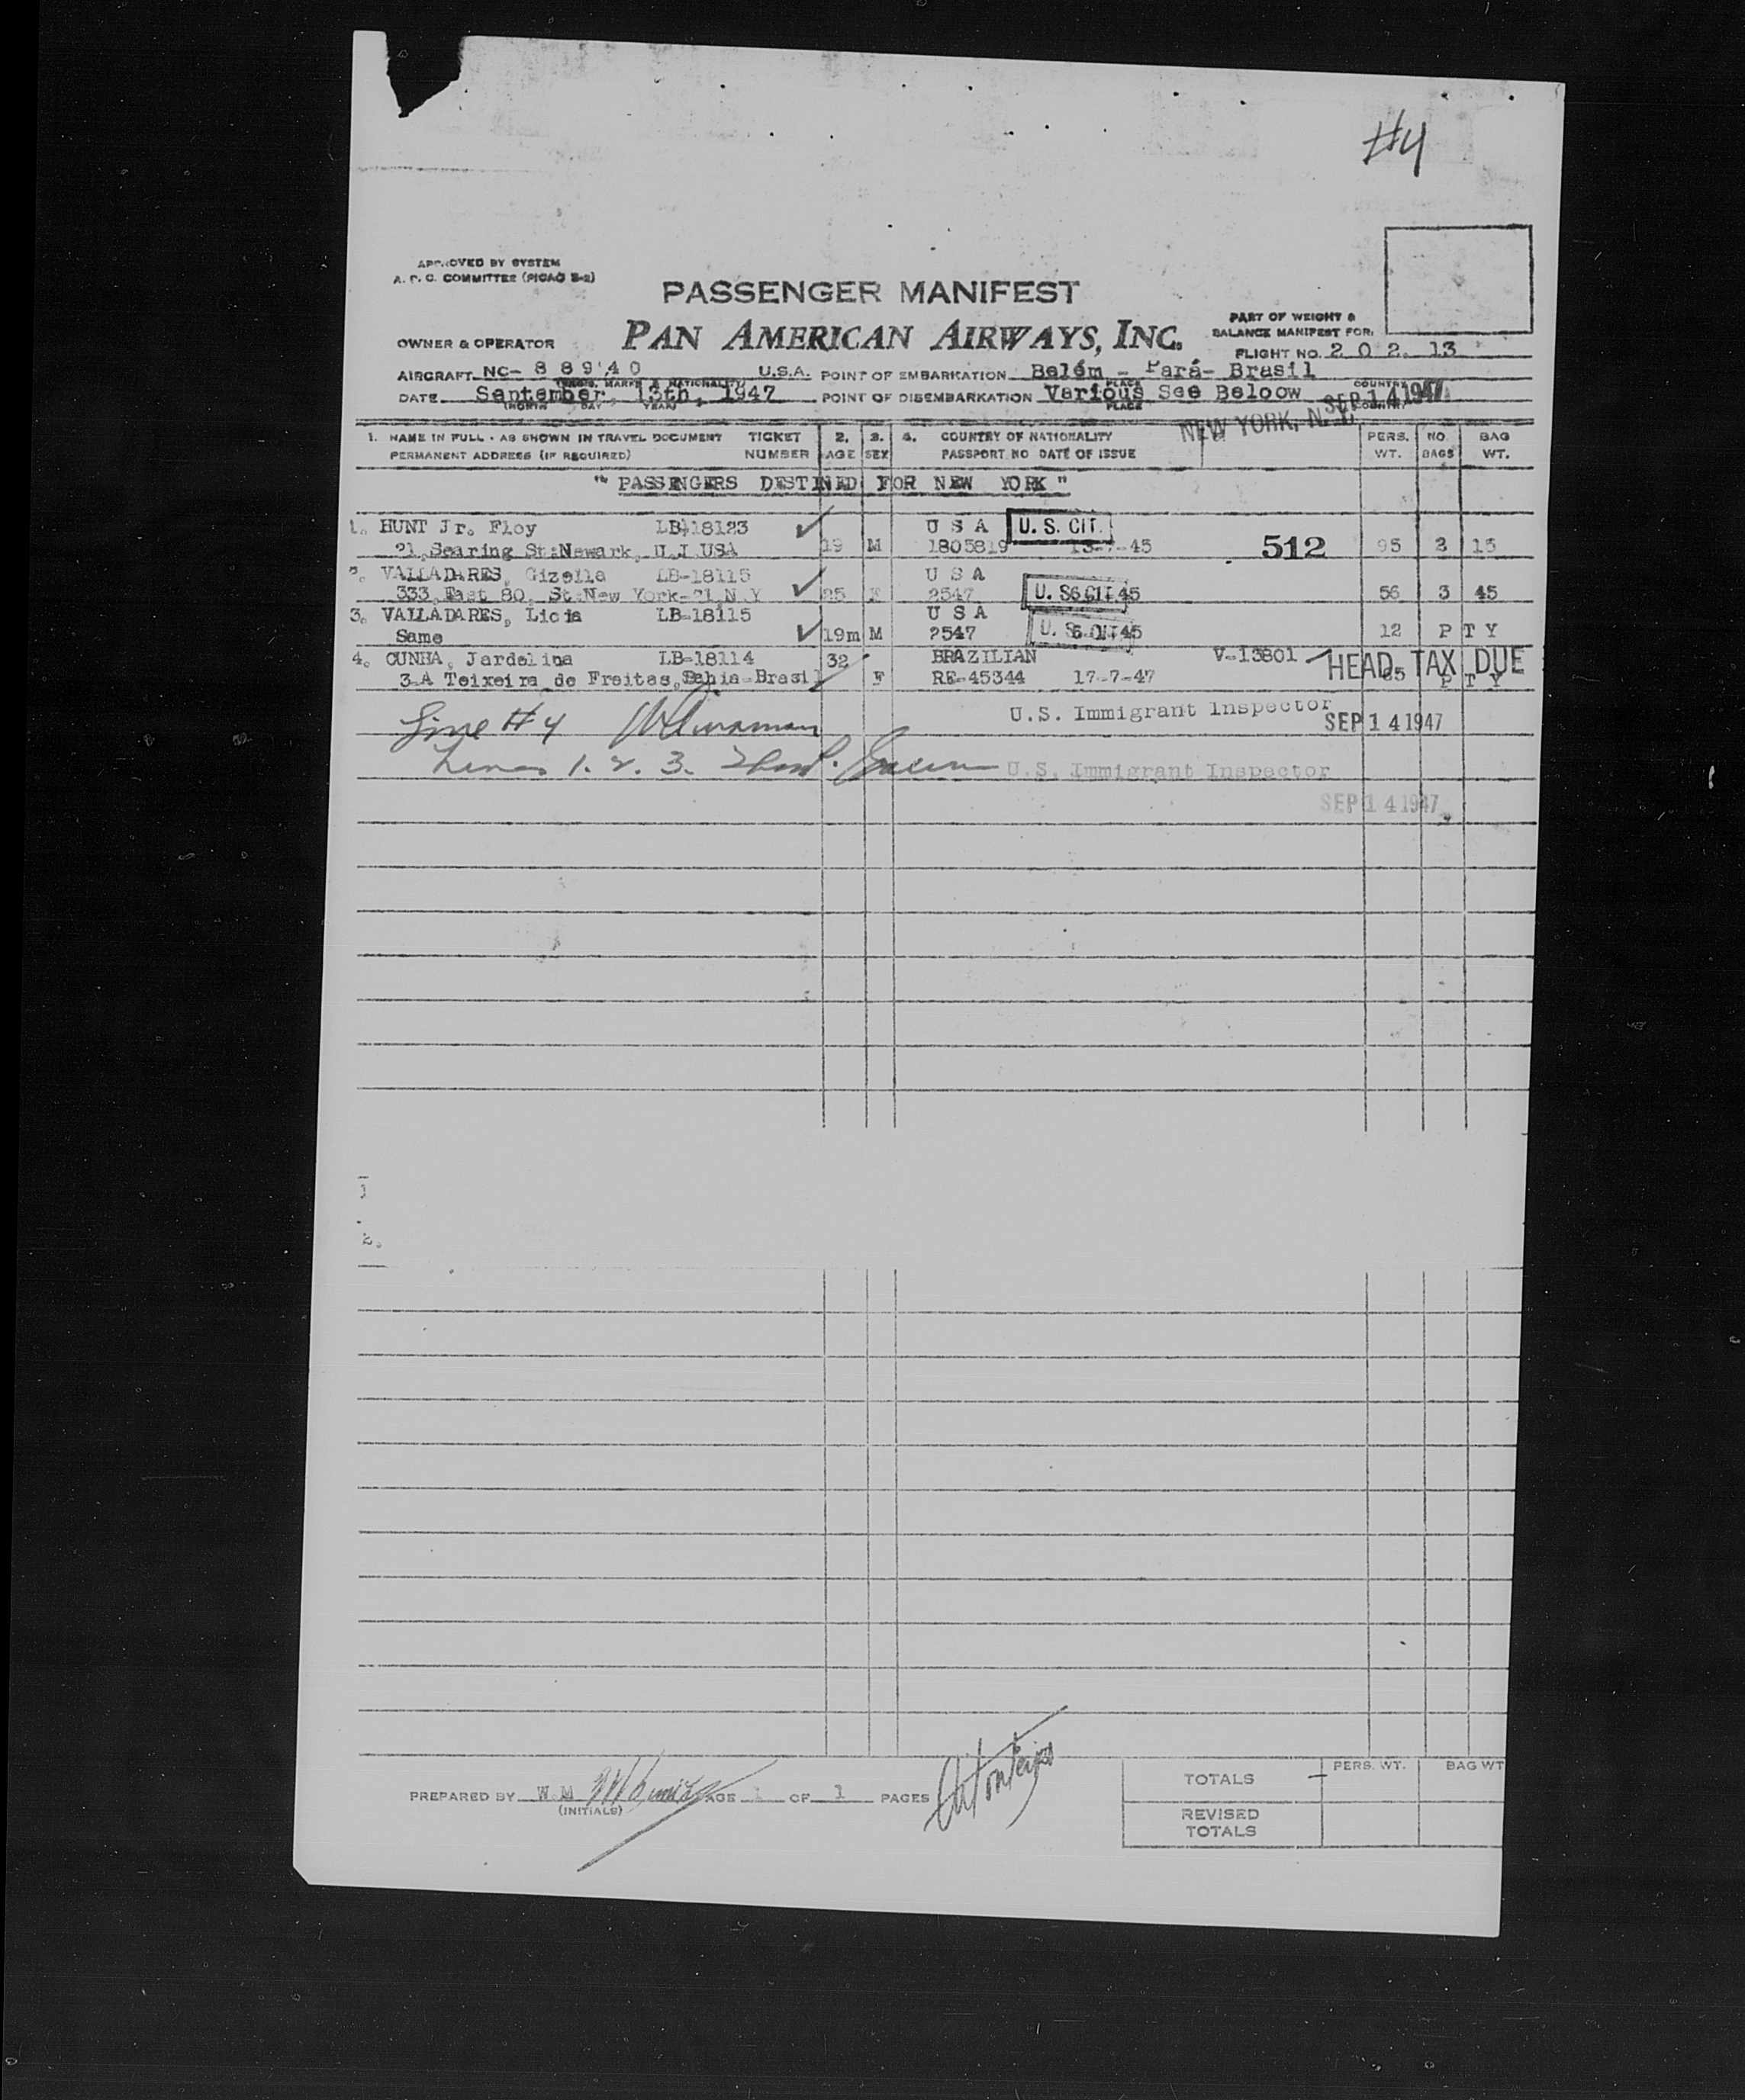 #4
APPROVED BY SYSTEM
A. P. C. COMMITTEE (PICAO B-2)
PASSENGER MANIFEST
PART OF WEIGHT &
BALANCE MANIFEST FOR:
OWNER & OPERATOR PAN AMERICAN AIRWAYS, INC.
FLIGHT NO. 202. 13
AIRCRAFT NC- 88940 U.S.A. POINT OF EMBARKATION Belém - Pará- Brasil
PLACE COUNTRY
DATE September, 13th, 1947 POINT OF DISEMBARKATION Various See Beloow SEP 14 1947
(MONTH DAY YEAR) PLACE COUNTRY
NEW YORK, N.Y.
1. NAME IN FULL - AS SHOWN IN TRAVEL DOCUMENT TICKET 2. 3. 4. COUNTRY OF NATIONALITY PERS. NO. BAG
PERMANENT ADDRESS (IF REQUIRED) NUMBER AGE SEX PASSPORT NO DATE OF ISSUE WT. BAGS WT.
" PASSENGERS DESTINED FOR NEW YORK "
1. HUNT Jr. Floy LB-18123 U S A U. S. CIT.
21 Searing St:Newark, U.J USA 19 M 1805819 13-7-45 512 95 2 15
2. VALLADARES, Gizella LB-18115 U S A
333 East 80, St:New York-21 N.Y 25 F 2547 U. S. CIT. 45 56 3 45
3. VALLADARES, Licia LB-18115 U S A
Same 19m M 2547 U. S. CIT. 45 12 P T Y
4. CUNHA, Jardelina LB-18114 32 BRAZILIAN V-13801 HEAD TAX DUE
3-A Teixeira de Freitas, Bahia-Brasil F RE-45344 17-7-47 P T Y
Line #4 U.S. Immigrant Inspector
SEP 14 1947
Lines 1. 2. 3. U.S. Immigrant Inspector
SEP 14 1947
2.
PREPARED BY W.M PAGE 1 OF 1 PAGES
(INITIALS)
PERS. WT. BAG WT
TOTALS
REVISED
TOTALS